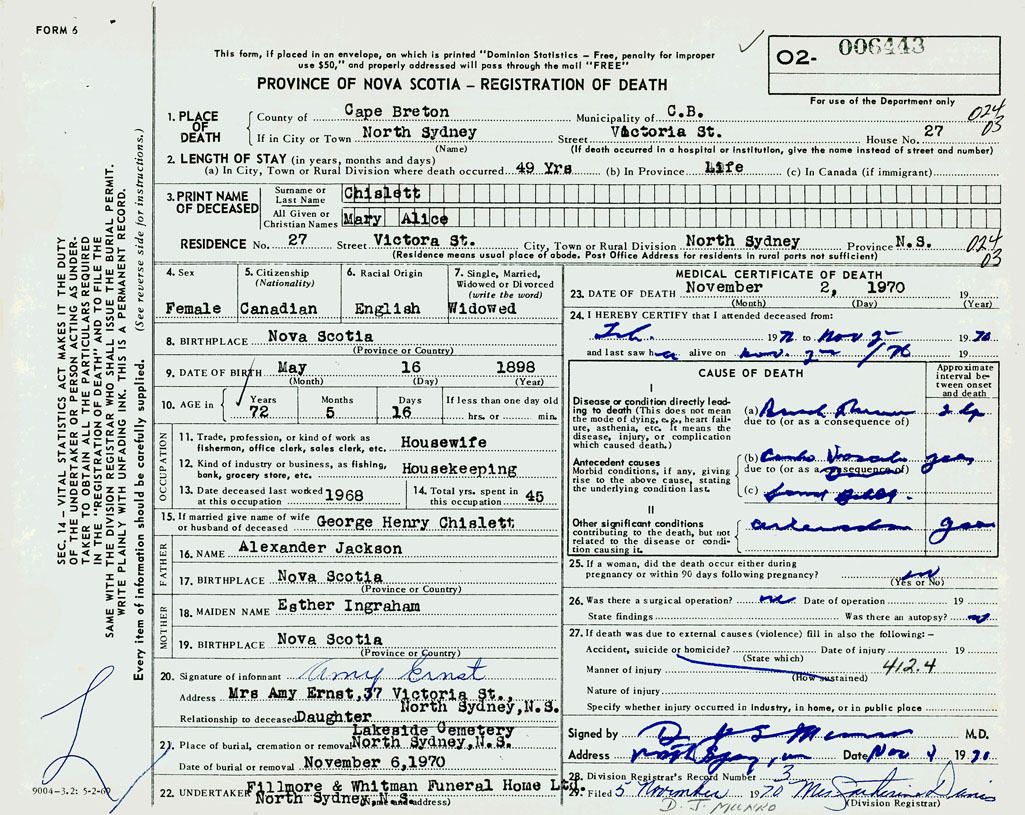 FORM 6
This form, if placed in an envelope, on which is printed "Dominion Statistics – Free, penalty for improper
use $50," and properly addressed will pass through the mail "FREE"
PROVINCE OF NOVA SCOTIA – REGISTRATION OF DEATH
O2- 006443
For use of the Department only
1. PLACE OF DEATH
County of Cape Breton Municipality of C.B. 024
If in City or Town North Sydney Street Victoria St. House No. 27 03
(Name) (If death occurred in a hospital or institution, give the name instead of street and number)
2. LENGTH OF STAY (in years, months and days)
(a) In City, Town or Rural Division where death occurred 49 Yrs (b) In Province Life (c) In Canada (if immigrant)
3. PRINT NAME OF DECEASED
Surname or Last Name Chislett
All Given or Christian Names Mary Alice
RESIDENCE No. 27 Street Victora St. City, Town or Rural Division North Sydney Province N.S. 024
(Residence means usual place of abode. Post Office Address for residents in rural parts not sufficient) 03
4. Sex
Female
5. Citizenship
(Nationality)
Canadian
6. Racial Origin
English
7. Single, Married,
Widowed or Divorced
(write the word)
Widowed
8. BIRTHPLACE Nova Scotia
(Province or Country)
9. DATE OF BIRTH May 16 1898
(Month) (Day) (Year)
10. AGE in Years Months Days If less than one day old
72 5 16 hrs. or min.
OCCUPATION
11. Trade, profession, or kind of work as Housewife
fishermon, office clerk, sales clerk, etc.
12. Kind of industry or business, as fishing, Housekeeping
bank, grocery store, etc.
13. Date deceased last worked 1968
at this occupation
14. Total yrs. spent in 45
this occupation
15. If married give name of wife George Henry Chislett
or husband of deceased
FATHER
16. NAME Alexander Jackson
17. BIRTHPLACE Nova Scotia
(Province or Country)
MOTHER
18. MAIDEN NAME Esther Ingraham
19. BIRTHPLACE Nova Scotia
(Province or Country)
20. Signature of informant Amy Ernst
Address Mrs Amy Ernst,37 Victoria St.,
North Sydney,N.S.
Relationship to deceased Daughter
Lakeside Cemetery
21. Place of burial, cremation or removal North Sydney,N.S.
Date of burial or removal November 6,1970
22. UNDERTAKER Fillmore & Whitman Funeral Home Ltd.
North Sydney N.S.
(Name and address)
MEDICAL CERTIFICATE OF DEATH
23. DATE OF DEATH November 2, 1970 19
(Month) (Day) (Year)
24. I HEREBY CERTIFY that I attended deceased from:
19 to Nov 2 19 70
and last saw h alive on Nov. 2 19
CAUSE OF DEATH
Approximate
interval be-
tween onset
and death
I
Disease or condition directly lead-
ing to death (This does not mean
the mode of dying, e.g., heart fail-
ure, asthenia, etc. It means the
disease, injury, or complication
which caused death.)
(a)
due to (or as a consequence of)
Antecedent causes
Morbid conditions, if any, giving
rise to the above cause, stating
the underlying condition last.
(b)
due to (or as a consequence of)
(c)
II
Other significant conditions
contributing to the death, but not
related to the disease or condi-
tion causing it.
25. If a woman, did the death occur either during
pregnancy or within 90 days following pregnancy? no
(Yes or No)
26. Was there a surgical operation? no Date of operation 19
State findings Was there an autopsy? no
27. If death was due to external causes (violence) fill in also the following: –
Accident, suicide or homicide? Date of injury 19
(State which)
Manner of injury 412.4
(How sustained)
Nature of injury
Specify whether injury occurred in industry, in home, or in public place
Signed by M.D.
Address Date Nov 4 1970
28. Division Registrar's Record Number 3
29. Filed 5 November 1970 Mrs
D. J. MUNRO (Division Registrar)
SEC. 14 – VITAL STATISTICS ACT MAKES IT THE DUTY
OF THE UNDERTAKER OR PERSON ACTING AS UNDER-
TAKER TO OBTAIN ALL THE PARTICULARS REQUIRED
IN THE "REGISTRATION OF DEATH" AND TO FILE THE
SAME WITH THE DIVISION REGISTRAR WHO SHALL ISSUE THE BURIAL PERMIT.
WRITE PLAINLY WITH UNFADING INK. THIS IS A PERMANENT RECORD.
Every item of information should be carefully supplied. (See reverse side for instructions.)